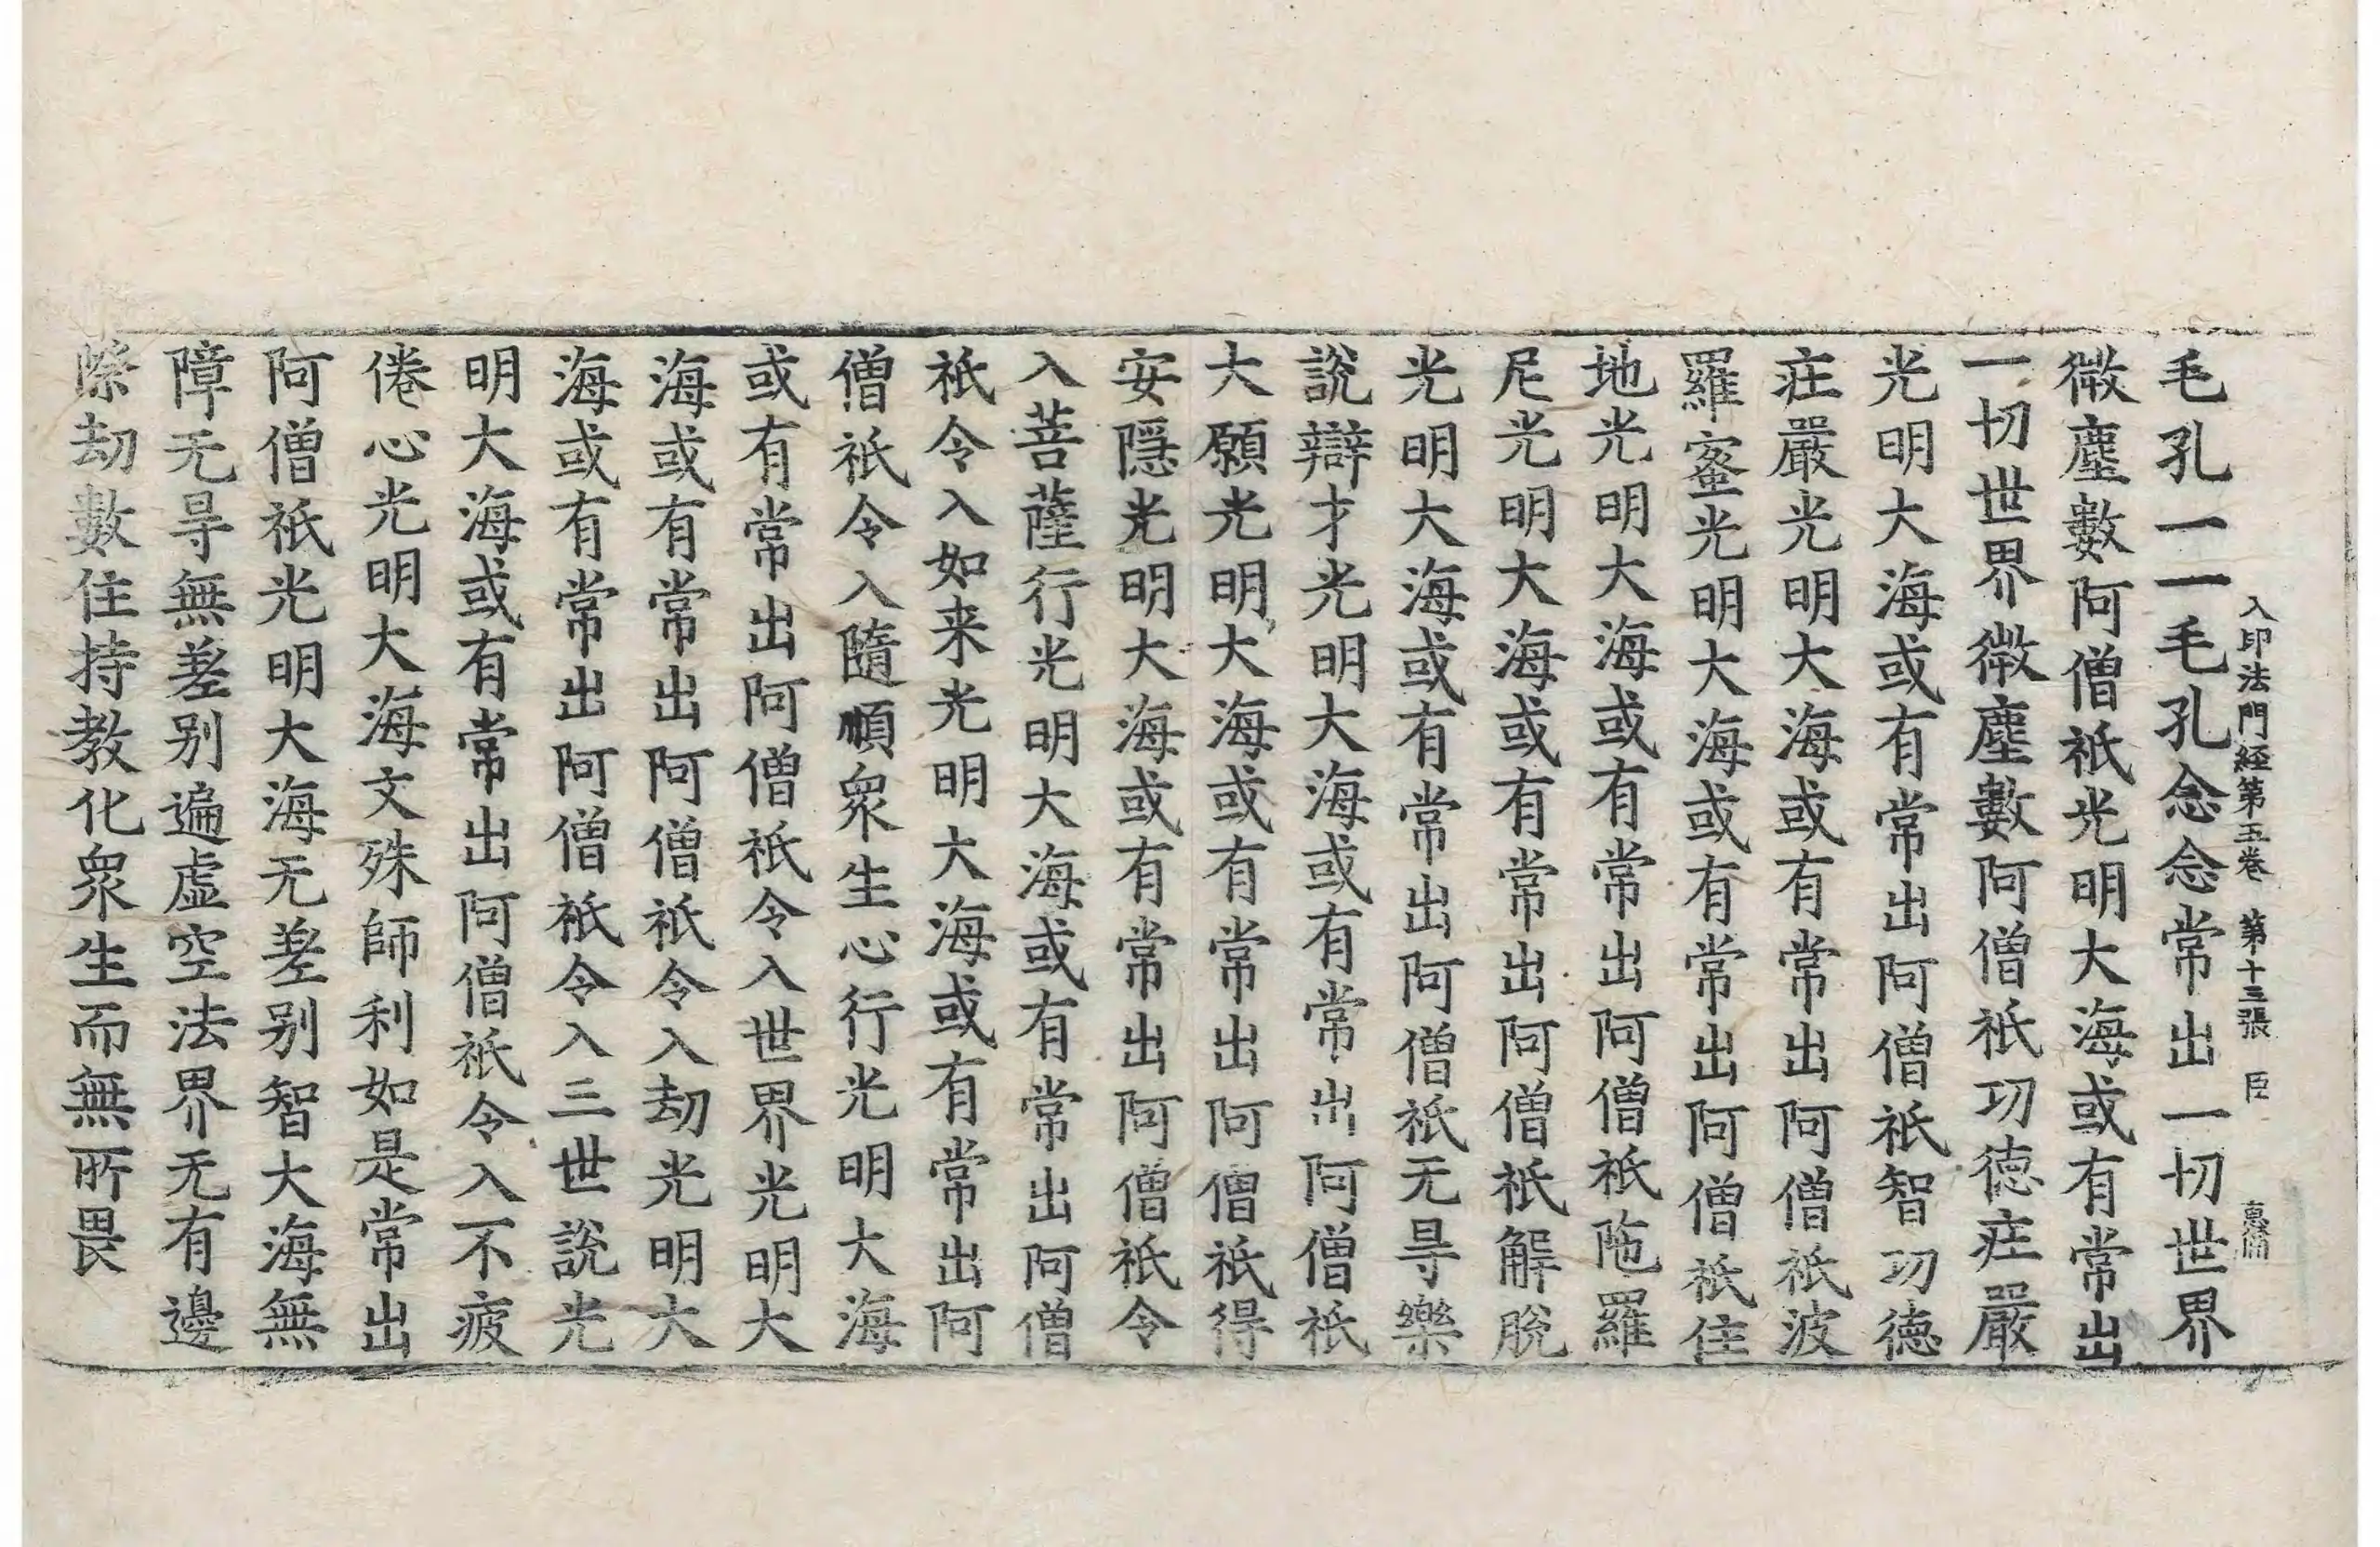 入印法門經第五卷 第十三張 臣
毛孔一一毛孔念念常出一切世界
微塵數阿僧祇光明大海或有常出
一切世界微塵數阿僧祇功徳疘嚴
光明大海或有常出阿僧祇智功徳
疘嚴光明大海或有常出阿僧祇波
羅蜜光明大海或有常出阿僧祇住
地光明大海或有常出阿僧祇陁羅
尼光明大海或有常出阿僧祇解脫
光明大海或有常出阿僧祇无㝵樂
說辯才光明大海或有常出阿僧祇
大願光明大海或有常出阿僧祇得
安隱光明大海或有常出阿僧祇令
入菩薩行光明大海或有常出阿僧
祇令入如来光明大海或有常出阿
僧祇令入隨順衆生心行光明大海
或有常出阿僧祇令入世界光明大
海或有常出阿僧祇令入劫光明大
海或有常出阿僧祇令入三世說光
明大海或有常出阿僧祇令入不疲
倦心光明大海文殊師利如是常出
阿僧祇光明大海无差别智大海無
障无㝵無差别遍虛空法界无有邊
際劫數住持教化衆生而無所畏